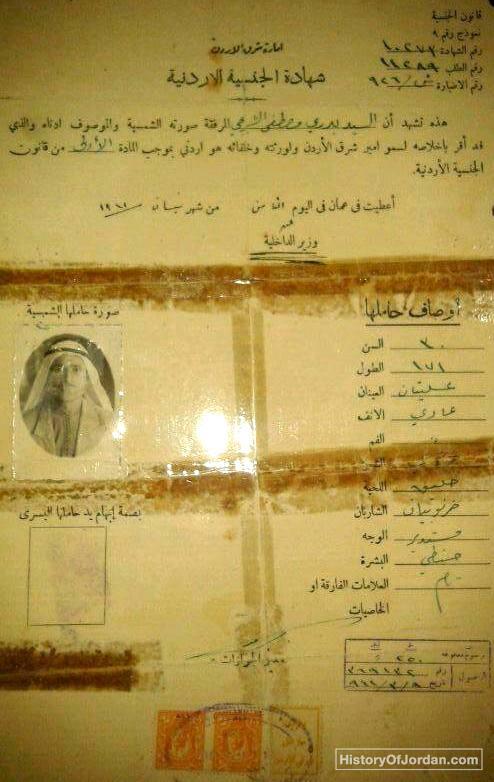 قانون الجنسية
نموذج رقم ٩
رقم الشهادة ١٠٢٧٣
رقم الطلب ١١٢٨٩
رقم الاضبارة ش/٩٢٦
امارة شرق الاردن
شهادة الجنسية الاردنية
هذه تشهد أن السيد بدري مصطفى المرفقة صورته الشمسية والموصوف ادناه والذي
قد أقر بإخلاصه لسمو امير شرق الأردن ولورثته وخلفائه هو اردني بموجب المادة الأولى من قانون
الجنسية الأردنية.
أعطيت في عمان في اليوم الثامن من شهر نيسان
وزير الداخلية
صورة حاملها الشمسية
أوصاف حاملها
السن ٣٠
الطول ١٧١
العينان عسليتان
الانف عادي
الفم
اللحية
الشاربان
الوجه مستدير
البشرة حنطي
العلامات الفارقة او
الخاصيات
بصمة إبهام يد حاملها اليسرى
مدير الجوازات
٢٥٠
رقم ٣٦٩١٣٢
HistoryOfJordan.com